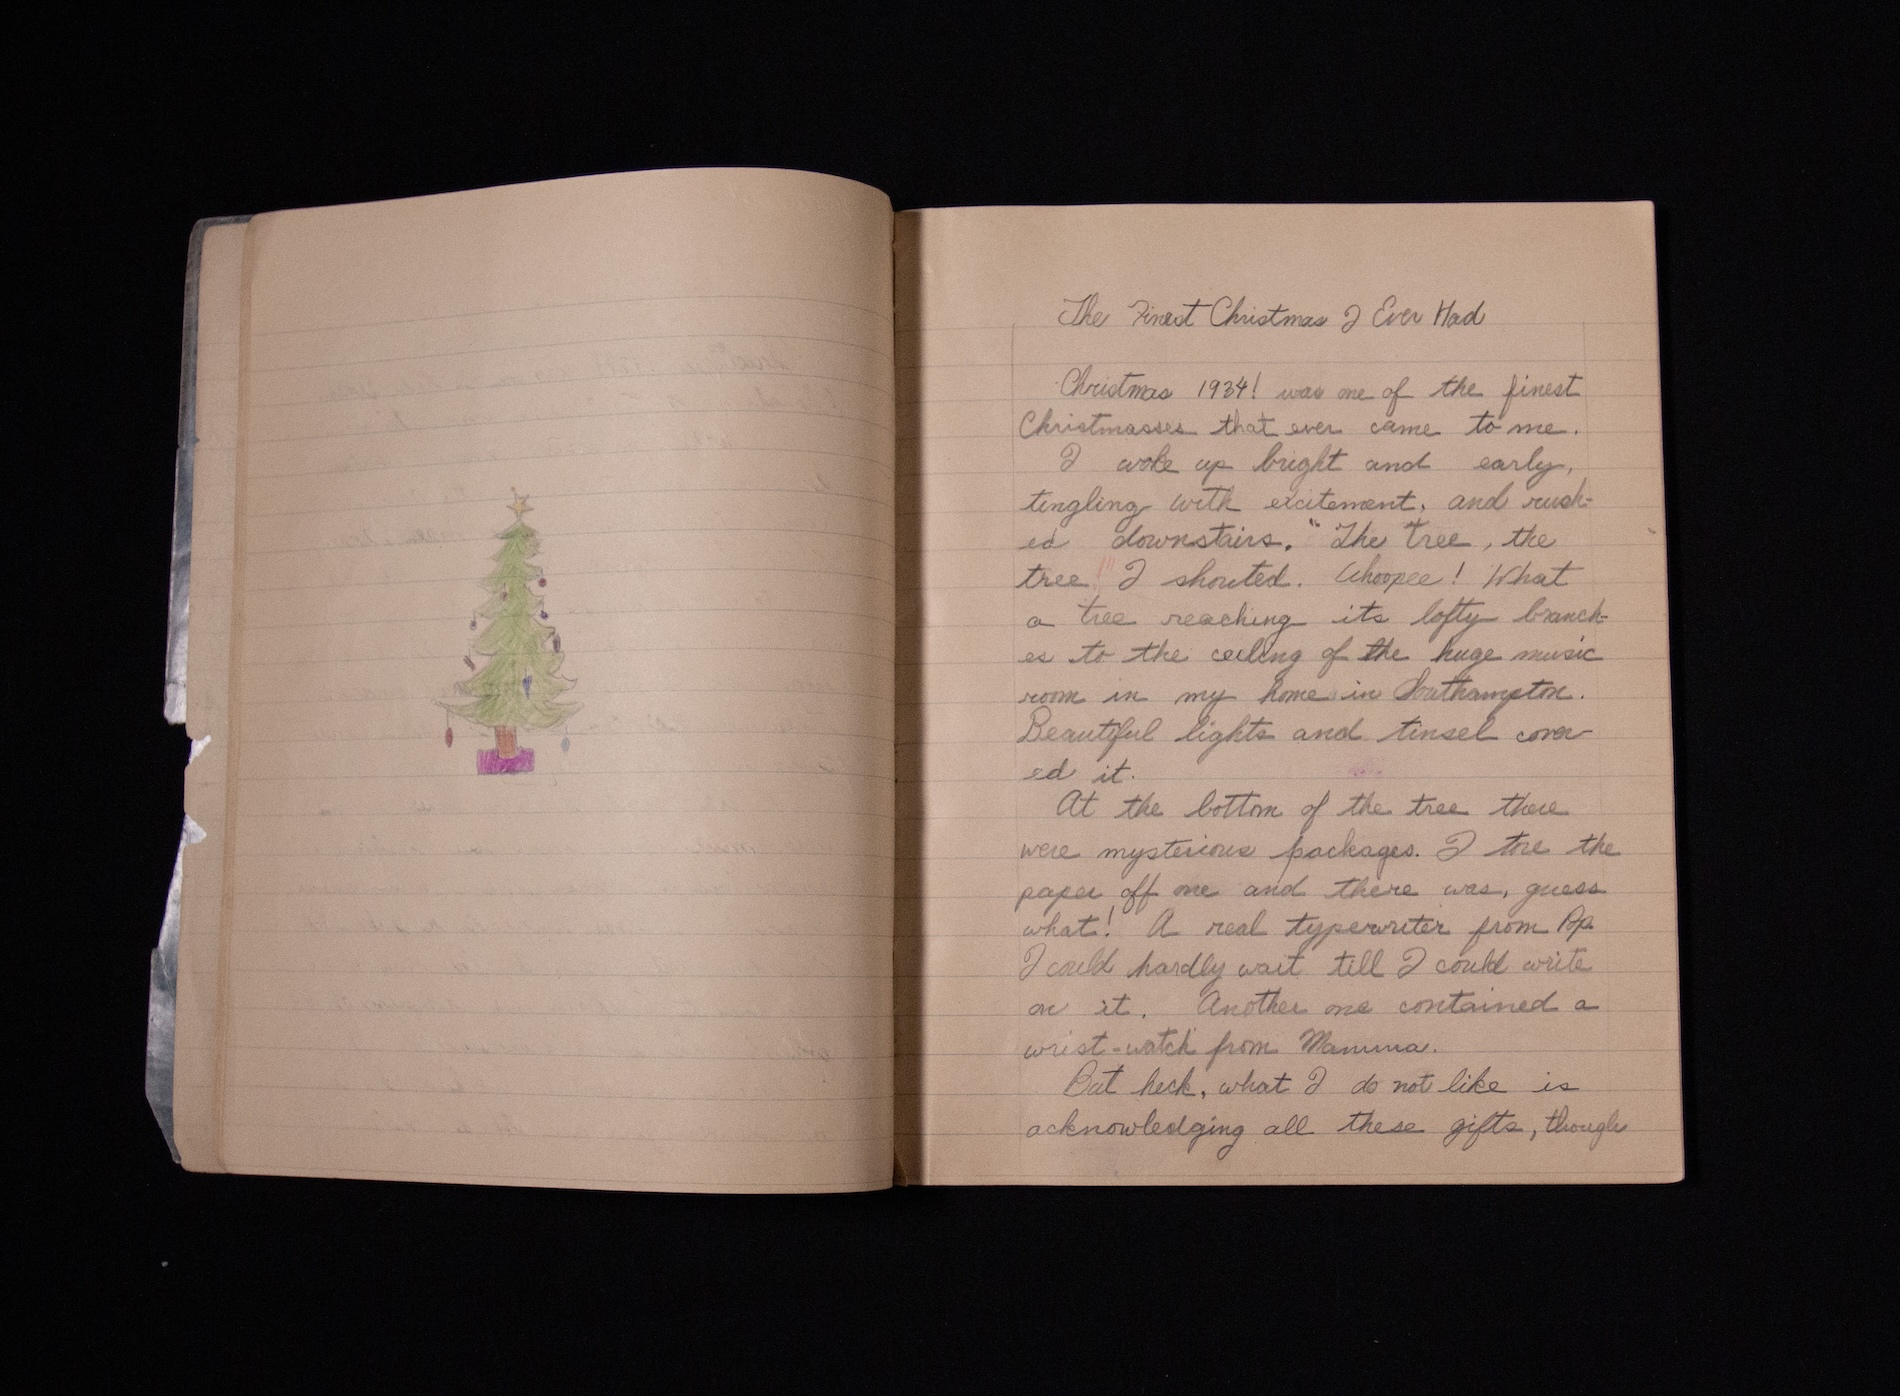 The Finest Christmas I Ever Had
Christmas 1934! was one of the finest
Christmasses that ever came to me.
I woke up bright and early,
tingling with excitement, and rush-
ed downstairs. "The tree, the
tree!" I shouted. Whoopee! What
a tree reaching its lofty branch-
es to the ceiling of the huge music
room in my home in Southampton.
Beautiful lights and tinsel cover-
ed it.
At the bottom of the tree there
were mysterious packages. I tore the
paper off one and there was, guess
what! A real typewriter from Pop.
I could hardly wait till I could write
on it. Another one contained a
wrist-watch from Mamma.
But heck, what I do not like is
acknowledging all these gifts, though